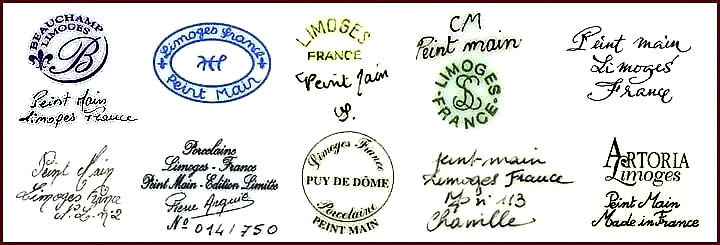 BEAUCHAMP
LIMOGES
B
Peint Main
Limoges France
Limoges France
Peint Main
LIMOGES
FRANCE
Peint Main
CM
Peint main
LIMOGES
FRANCE
Peint main
Limoges
France
Peint Main
Limoges France
Porcelaine
Limoges - France
Peint Main - Edition Limitée
Pierre Arquié
Nº 014/750
Limoges France
PUY DE DÔME
Porcelaine
PEINT MAIN
peint-main
Limoges France
nº 113
Chamille
ARTORIA
Limoges
Peint Main
Made in France